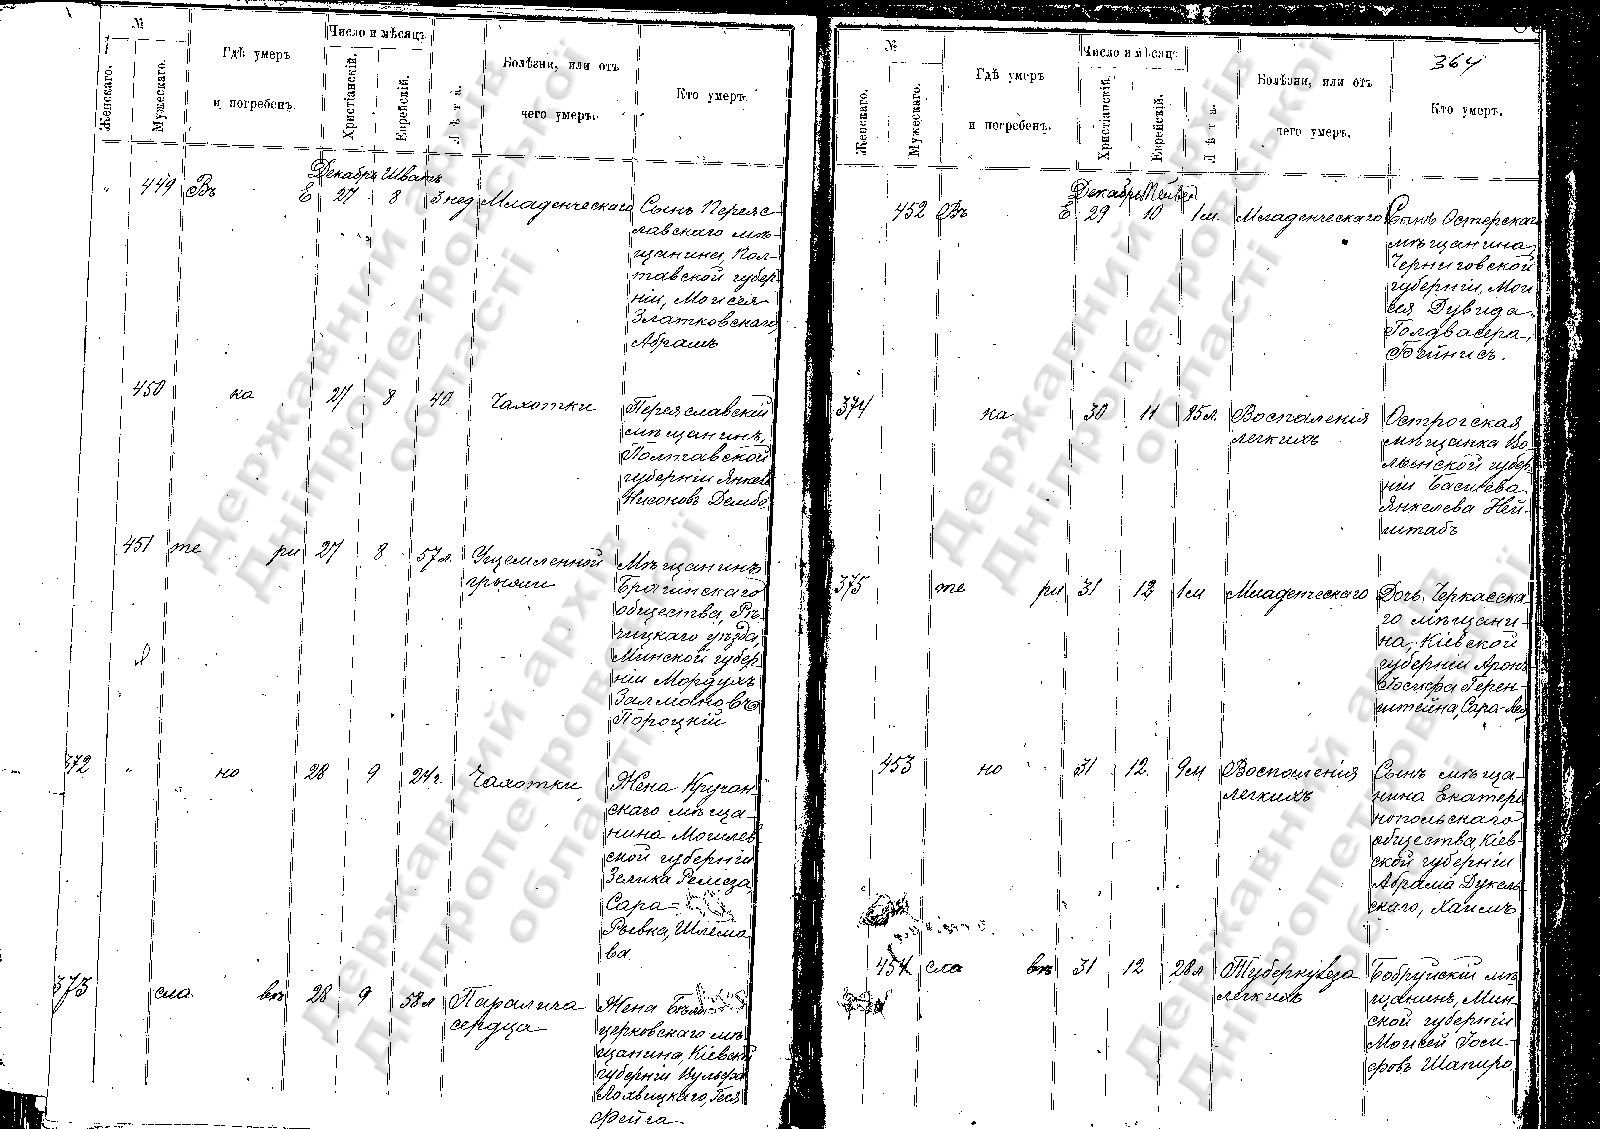 №
Женскаго.
Мужескаго.
Гдѣ умеръ
и погребенъ.
Число и мѣсяцъ
Христіанскій.
Еврейскій.
Лѣта.
Болѣзни, или отъ
чего умеръ.
Кто умеръ.
Декабрь
449 Въ Е 27 8 3 нед Младенческаго
Сынъ Переяс-
лавскаго мѣ-
щанина, Пол-
тавской губер
ніи, Моисея
Златковскаго
Абрамъ
450 ка 27 8 40 Чахотки
Переяславскій
мѣщанинъ,
Полтавской
губерніи Янкель
Нисоновъ Дембо
451 те ри 27 8 57 л. Ущемленной
грыжи
Мѣщанинъ
Брагинскаго
общества, Рѣ-
чицкаго уѣзда,
Минской губер-
ніи Мордухъ
Залмановъ
Пороцкій
372 " но 28 9 24 г. Чахотки
Жена Кручан-
скаго мѣща-
нина Могилев-
ской губерніи
Зелика Ремеза
Сара-
Рывка, Шлемо-
ва
373 сла въ 28 9 58 л Паралича
сердца
Жена Бѣло-
церковскаго мѣ-
щанина, Кіевской
губерніи Вульфа
Лохвицкаго, Геся
Фейга
364
№
Женскаго.
Мужескаго.
Гдѣ умеръ
и погребенъ.
Число и мѣсяцъ
Христіанскій.
Еврейскій.
Лѣта.
Болѣзни, или отъ
чего умеръ.
Кто умеръ.
Декабрь
452 Въ Е 29 10 1 м. Младенческаго
Сынъ Остерскаго
мѣщанина,
Черниговской
губерніи, Мои-
сея Дувида
Голдвасера,
Бейнисъ.
374 ка 30 11 25 л. Воспаленія
легкихъ
Острогская
мѣщанка Во
лынской губер-
ніи
Янкелева Ней-
штабъ
375 те ри 31 12 1 м Младенческаго
Дочь Черкасска-
го мѣщани-
на, Кіевской
губерніи Аронъ-
Іосифа Герен-
штейна, Сара-Лея
453 но 31 12. 9 м Воспаленія
легкихъ
Сынъ мѣща-
нина Екатери
нопольскаго
общества, Кіев-
ской губерніи
Абрама Дукель-
скаго, Хаимъ
454 сла въ 31 12 28 л Туберкулеза
легкихъ
Бобруйскій мѣ-
щанинъ, Мин-
ской губерніи
Моисей Іоси-
фовъ Шапиро
Державний архів
Дніпропетровської
області